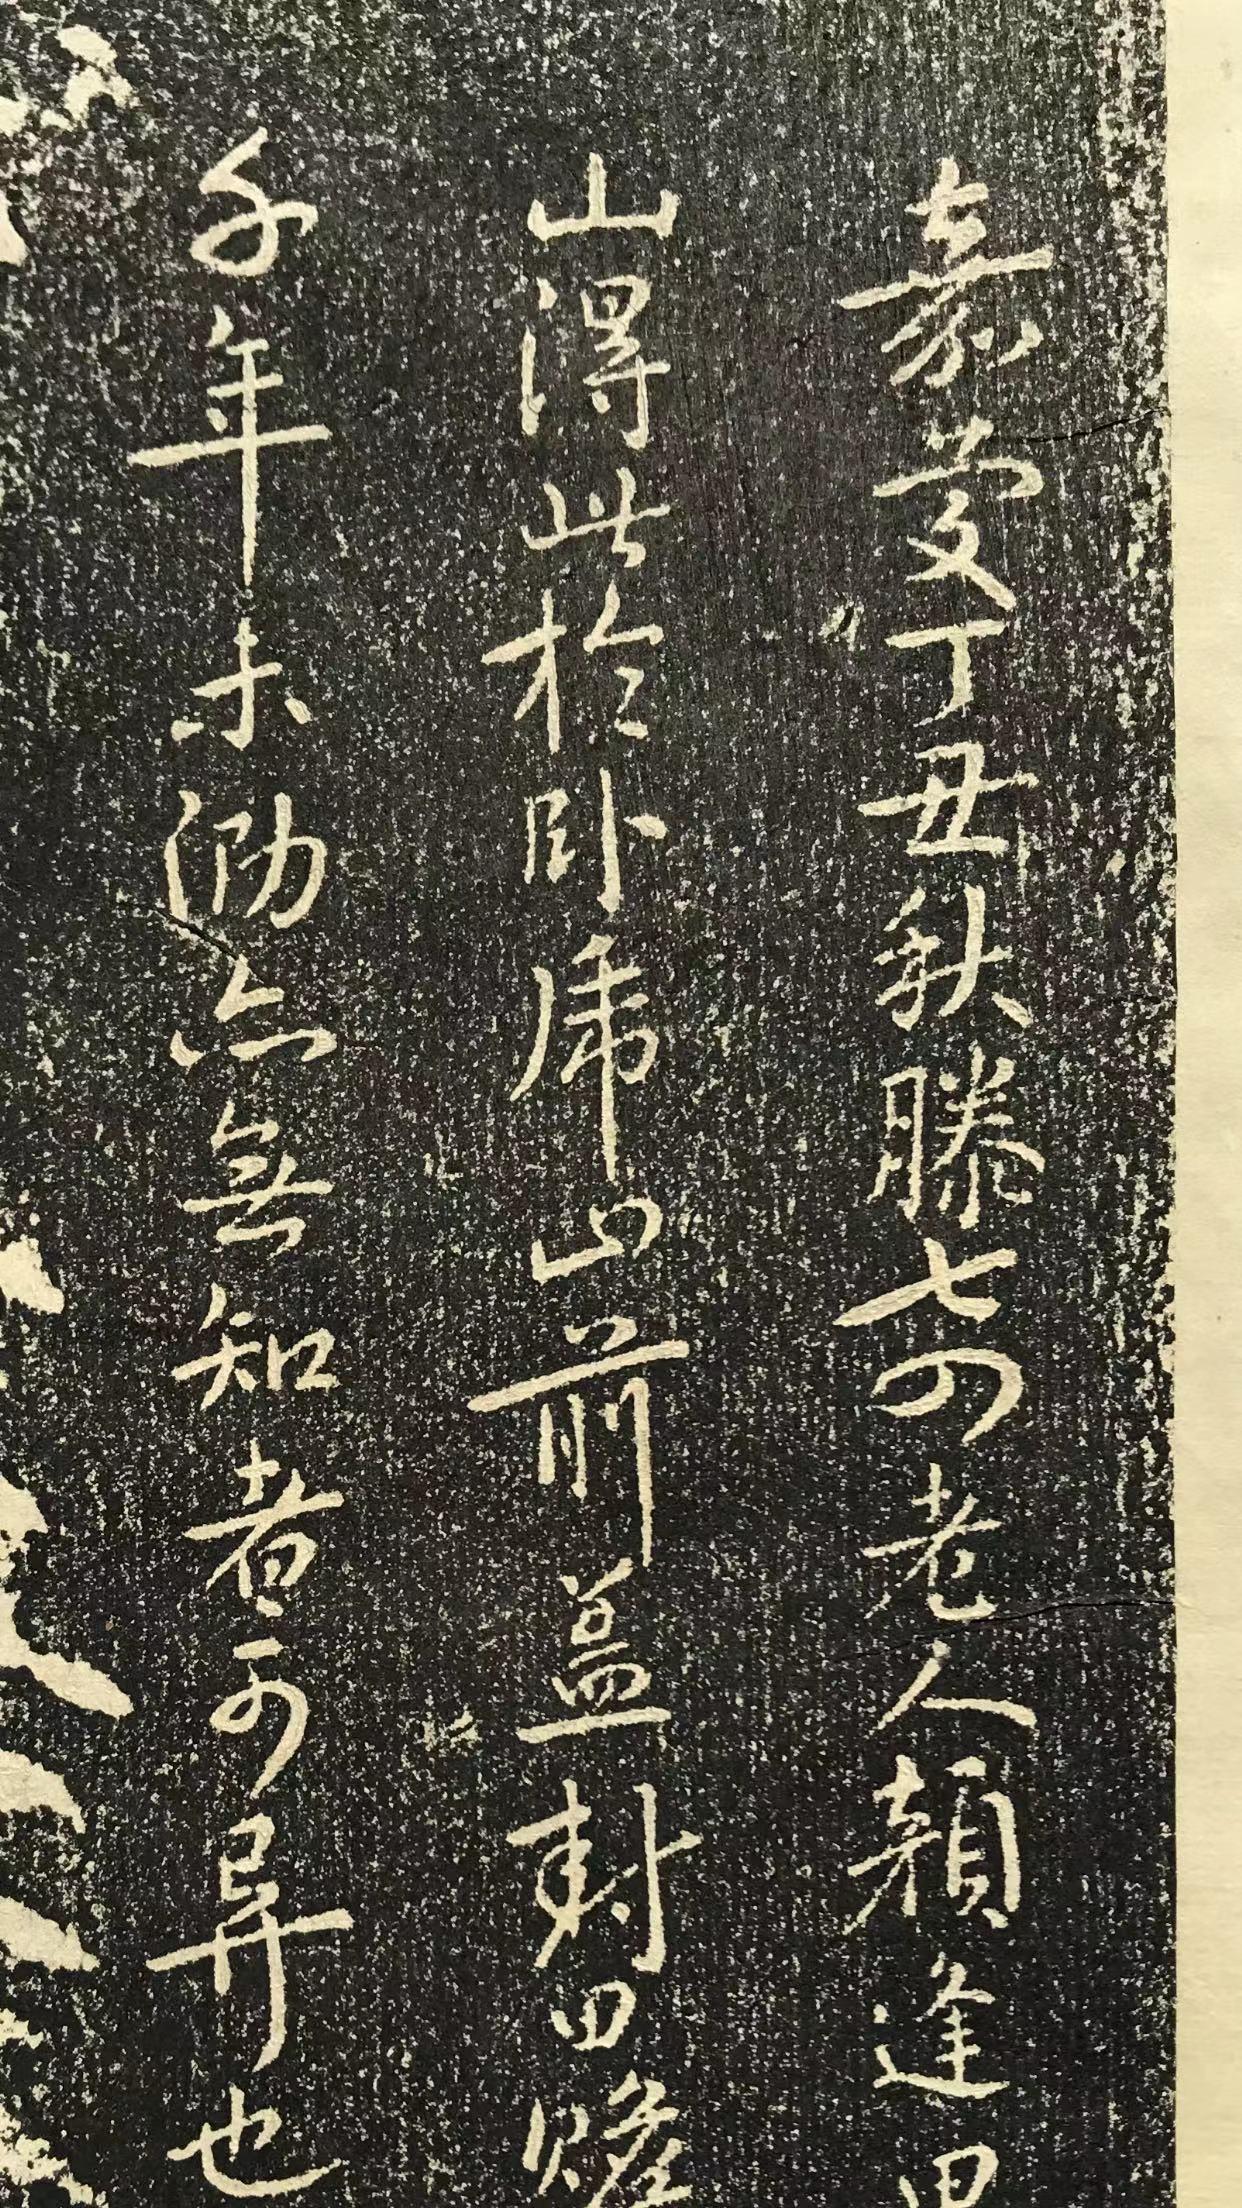 嘉慶丁丑秋滕七四老人顏逢甲
山得此於卧虎山前蓋封田贍
千年未泐亦無知者可異也